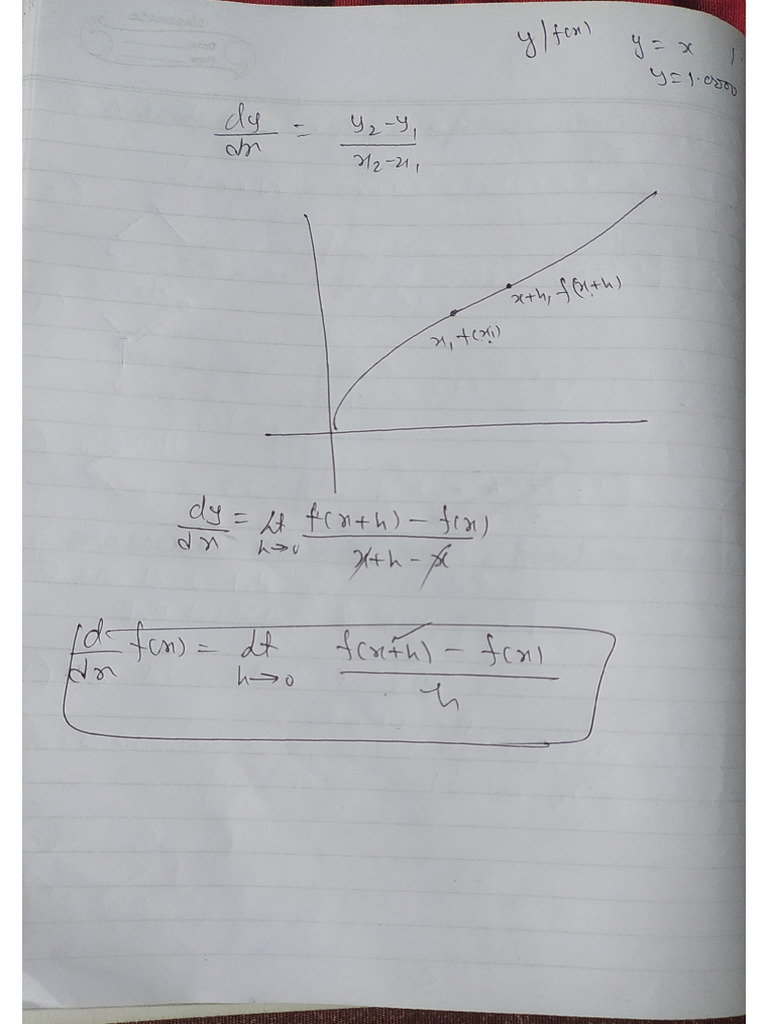 y/f(x) y = x 1.
y=1.00000
dy/dx = y₂-y₁/x₂-x₁
x+h, f(x+h)
x, f(x)
dy/dx = Lt h→0 f(x+h) - f(x)/x+h-x
d/dx f(x) = Lt h→0 f(x+h) - f(x)/h